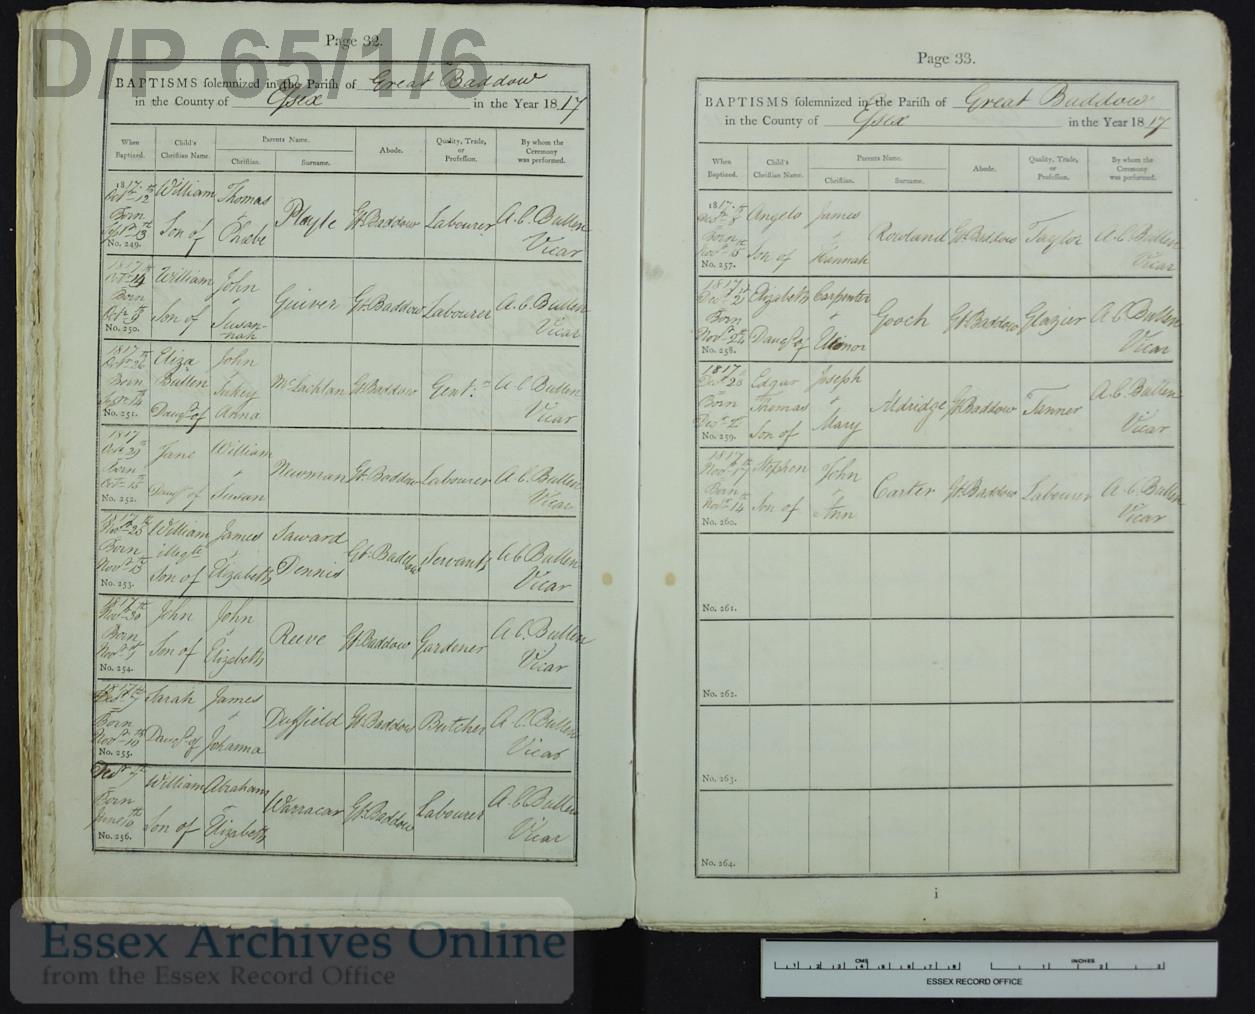 D/P 65/1/6
Page 32.
BAPTISMS solemnized in the Parish of Great Baddow
in the County of Essex in the Year 1817
When Baptized. Child's Christian Name. Parents Name. Christian. Surname. Abode. Quality, Trade, or Profession. By whom the Ceremony was performed.
1817. Octr 12th Born Septr 13th No. 249. William Son of Thomas & Phœbe Playle Gt. Baddow Labourer A. C. Bullen Vicar
1817 Born No. 250. William Son of John & Susannah Quiver Gt. Baddow Labourer A. C. Bullen Vicar
1817 Octr 26th Born No. 251. Eliza Bullen Daugr of John & Sukey Anna McLachlan Gt Baddow Gent. A. C. Bullen Vicar
1817 Octr 29 Born Octr 15 No. 252. Jane Daugr of William & Susan Newman Gt. Baddow Labourer A. C. Bullen Vicar
1817 Born No. 253. William illegte Son of James & Elizabeth Saward Dennis Gt. Baddow Servants A. C. Bullen Vicar
1817 Novr 30th Born Novr No. 254. John Son of John & Elizabeth Reeve Gt. Baddow Gardener A. C. Bullen Vicar
1817 Decr 7th Born Novr 10th No. 255. Sarah Daugr of James & Johanna Duffield Gt. Baddow Butcher A. C. Bullen Vicar
Decr 7th Born June No. 256. William Son of Abraham & Elizabeth Warracar Gt. Baddow Labourer A. C. Bullen Vicar
Page 33.
BAPTISMS solemnized in the Parish of Great Baddow
in the County of Essex in the Year 1817
When Baptized. Child's Christian Name. Parents Name. Christian. Surname. Abode. Quality, Trade, or Profession. By whom the Ceremony was performed.
1817. Born Novr No. 257. Angelo Son of James & Hannah Rowland Gt. Baddow Taylor A. C. Bullen Vicar
1817 Decr 21 Born Novr 24 No. 258. Elizabeth Daugr of Carpenter & Elionor Gooch Gt. Baddow Glazier A. C. Bullen Vicar
1817 Decr Born Decr No. 259. Edgar Thomas Son of Joseph & Mary Aldridge Gt. Baddow Tanner A. C. Bullen Vicar
1817 Novr 17th Born Novr 14 No. 260. Stephen Son of John & Ann Carter Gt. Baddow Labourer A. C. Bullen Vicar
No. 261.
No. 262.
No. 263.
No. 264.
i
Essex Archives Online
from the Essex Record Office
CMS 1 2 3 4 5 6 7 8 INCHES 1 2 3
ESSEX RECORD OFFICE